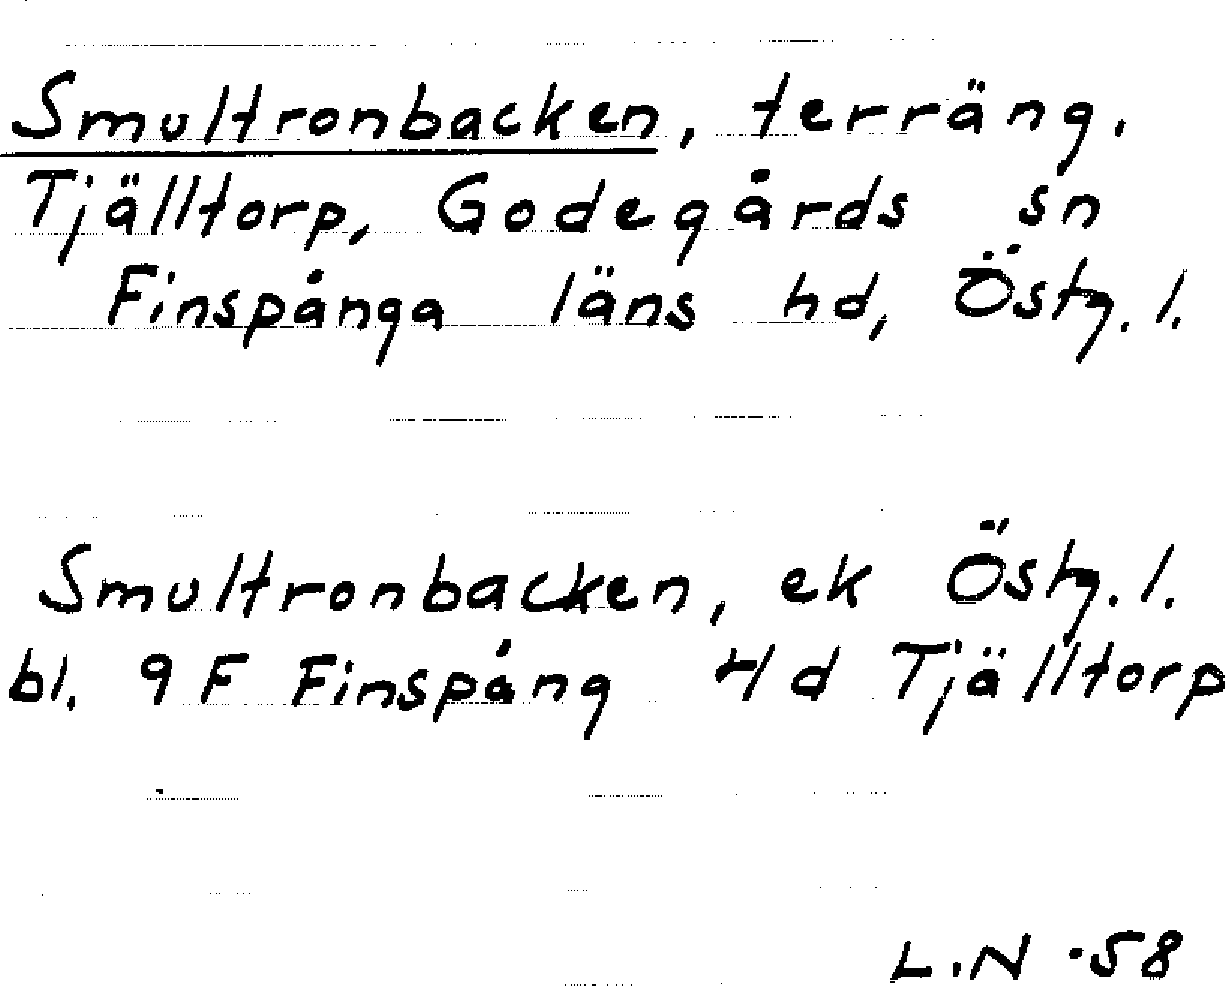 Smultronbacken, terräng.
Tjälltorp, Godegårds sn
Finspånga läns hd, Östg. l.
Smultronbacken, ek Östg. l.
bl. 9 F Finspång 4 d Tjälltorp
L.N -58